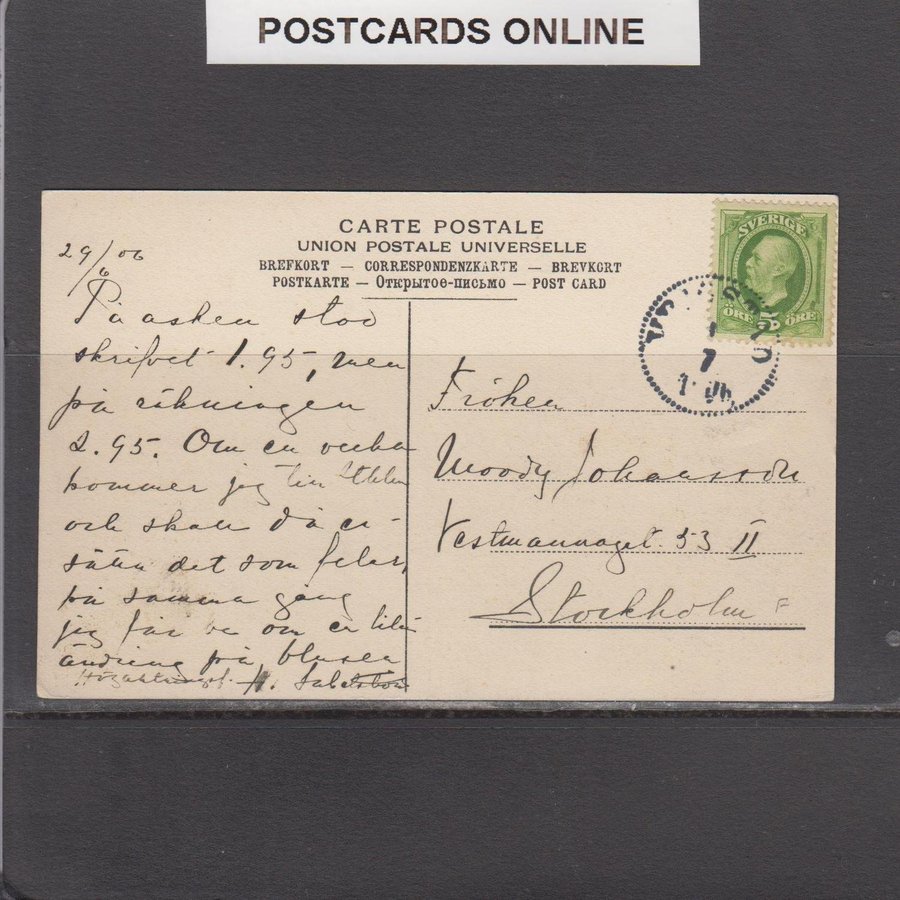 POSTCARDS ONLINE
CARTE POSTALE
UNION POSTALE UNIVERSELLE
BREFKORT — CORRESPONDENZKARTE — BREVKORT
POSTKARTE — Открытое-письмо — POST CARD
SVERIGE
ÖRE 5 ÖRE
29/6 06
På asken stod
skrifvet 1.95, men
på räkningen
2.95. Om en vecka
kommer jag till
och skall då er-
sätta det som felas,
på samma gång
jag får be om en liten
ändring på blusen
Högaktningsf. H.
Fröken
Moody Johansson
Vestmannagat. 53 II
Stockholm